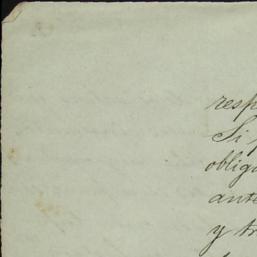 resp
Si
oblig
ante
y tr